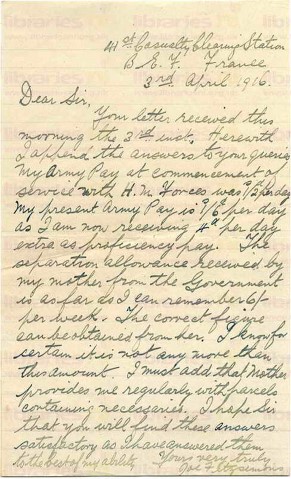 41st Casualty Clearing Station
B E F France
3rd April 1916.
Dear Sir,
Your letter received this
morning the 3rd inst. Herewith
I append the answers to your queries
My Army Pay at commencement of
service with H. M. Forces was 1/2 per day
My present Army Pay is 1/6 per day
as I am now receiving 4d per day
extra as proficiency pay. The
separation allowance received by
my mother from the Government
is as far as I can remember 6/-
per week. The correct figure
can be obtained from her. I know for
certain it is not any more than
this amount. I must add that Mother
provides me regularly with parcels
containing necessaries. I hope Sir
that you will find these answers
satisfactory as I have answered them
to the best of my ability Yours very truly
Jos. F.